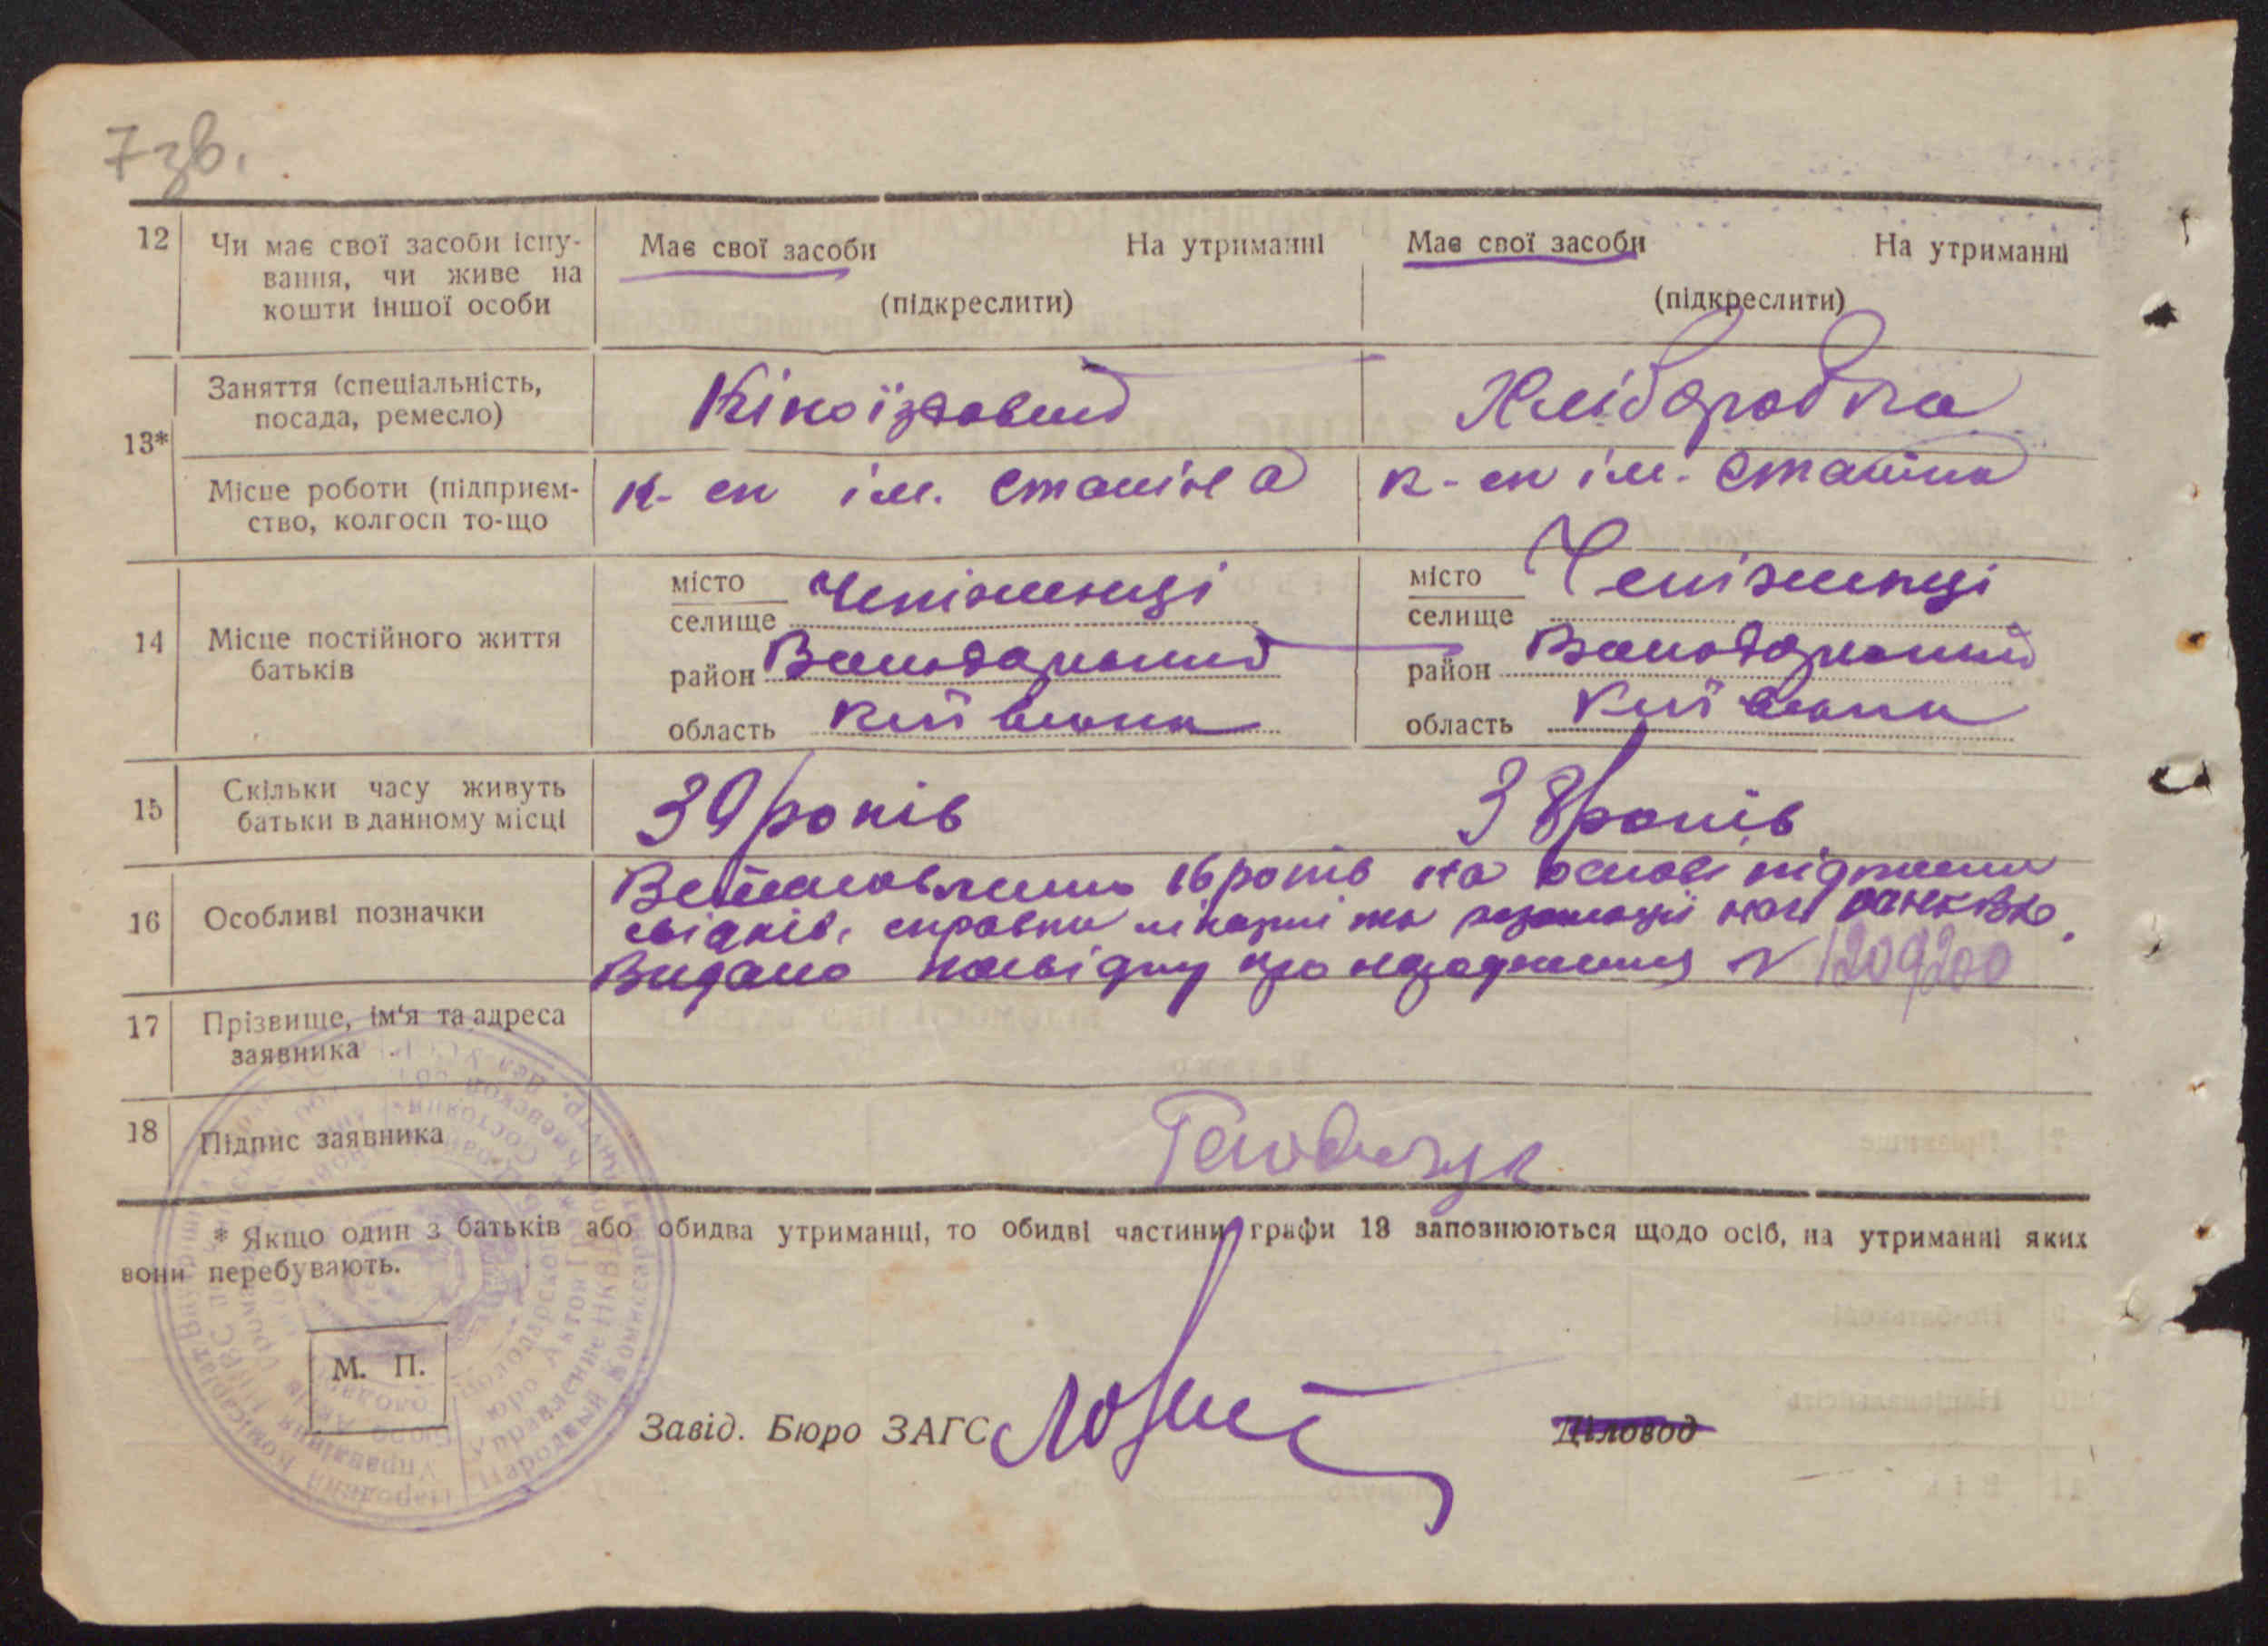 7 зв.
12 Чи має свої засоби існу- Має свої засоби На утриманні Має свої засоби На утриманні
вання, чи живе на
кошти іншої особи (підкреслити) (підкреслити)
13* Заняття (спеціальність,
посада, ремесло) Хліборобка
Місце роботи (підприєм- к-сп ім. Сталіна к-сп ім. Сталіна
ство, колгосп то-що
14 Місце постійного життя
батьків
місто місто
селище Чепіженці селище Чепіженці
район Володарський район Володарський
область Київська область Київська
15 Скільки часу живуть 39 років 38 років
батьки в данному місці
16 Особливі позначки
Встановлено 16 років на основі підписки
свідків, справки лікарні та
Видано посвідку про народження № 1209200
17 Прізвище, ім'я та адреса
заявника
18 Підпис заявника
* Якщо один з батьків або обидва утриманці, то обидві частини графи 13 заповнюються щодо осіб, на утриманні яких
вони перебувають.
М. П.
Завід. Бюро ЗАГС Діловод